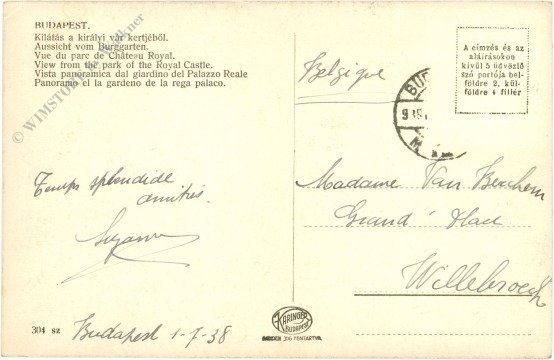 BUDAPEST.
Kilátás a királyi vár kertjéből.
Aussicht vom Burggarten.
Vue du parc de Château Royal.
View from the park of the Royal Castle.
Vista panoramica dal giardino del Palazzo Reale
Panorama el la gardeno de la rega palaco.
© WIMSTORY
Belgique
BUD
9 15
A címzés és az
aláírásokon
kívül 5 üdvözlő
szó portója bel-
földre 2, kül-
földre 4 fillér
Temps splendide
amitiés.
Suzanne
Madame Van Berchem
Grand' Place
Willebroeck
304 sz
Budapest 1-7-38
KARINGER
BUDAPEST
JOG FENTARTVA.